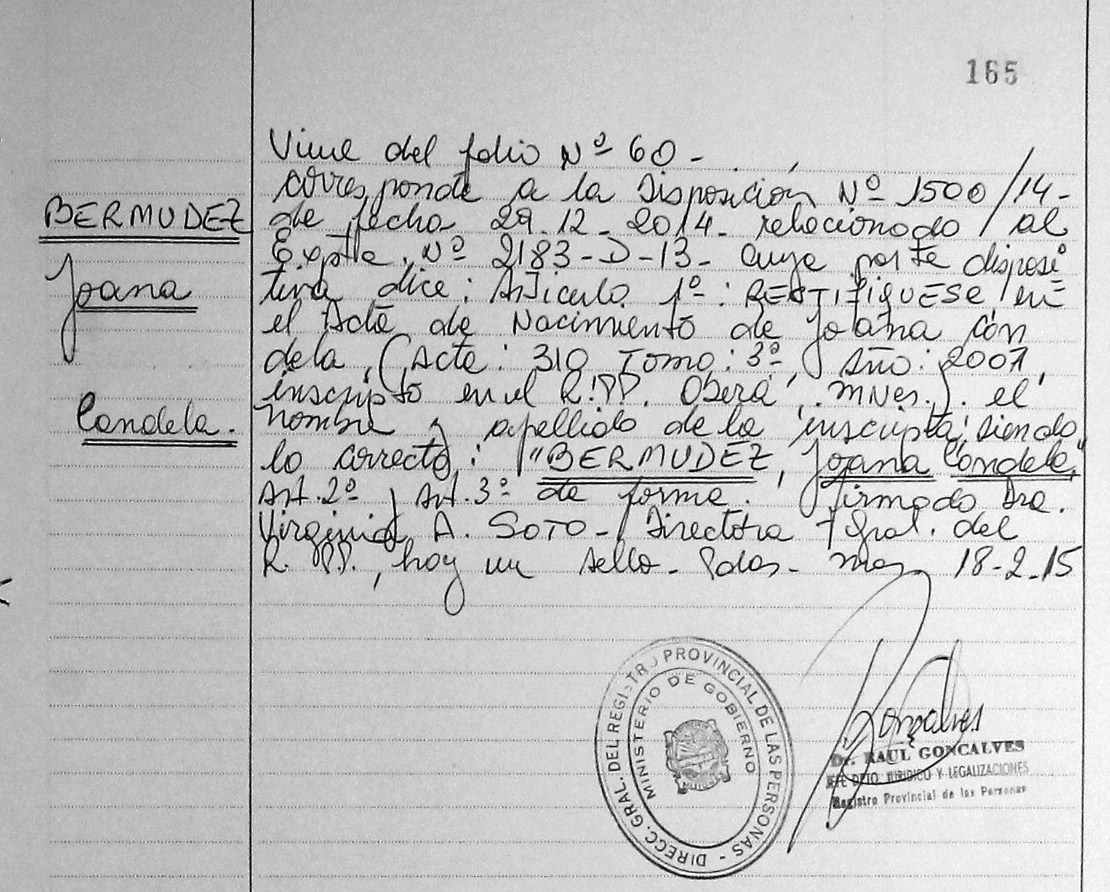 165
Viene del folio Nº 60-
corresponde a la Disposición Nº 1500/14-
BERMUDEZ
de fecha 29.12-2014- relacionado al
Expte. Nº 2183-D-13- cuya parte disposi
Joana
tiva dice: Articulo 1º: RECTIFIQUESE en
el Acta de Nacimiento de Joana Can
dela, (Acta: 310 Tomo: 3º, Año: 2007,
inscripto en el R.PP. Oberá, Mnes.). el
Candela.
nombre y apellido de la inscripta, siendo
lo correcto: "BERMUDEZ, Joana Candela"
Art. 2º y Art. 3º de forma. Firmado Dra.
Virginia A. SOTO- Directora Gral. del
R. PP., hay un sello- Pdas- Mnes 18-2-15
DIRECC. GRAL. DEL REGISTRO PROVINCIAL DE LAS PERSONAS -
MINISTERIO DE GOBIERNO
Goncalves
Dr. RAUL GONCALVES
JEFE DPTO. JURIDICO Y LEGALIZACIONES
Registro Provincial de las Personas